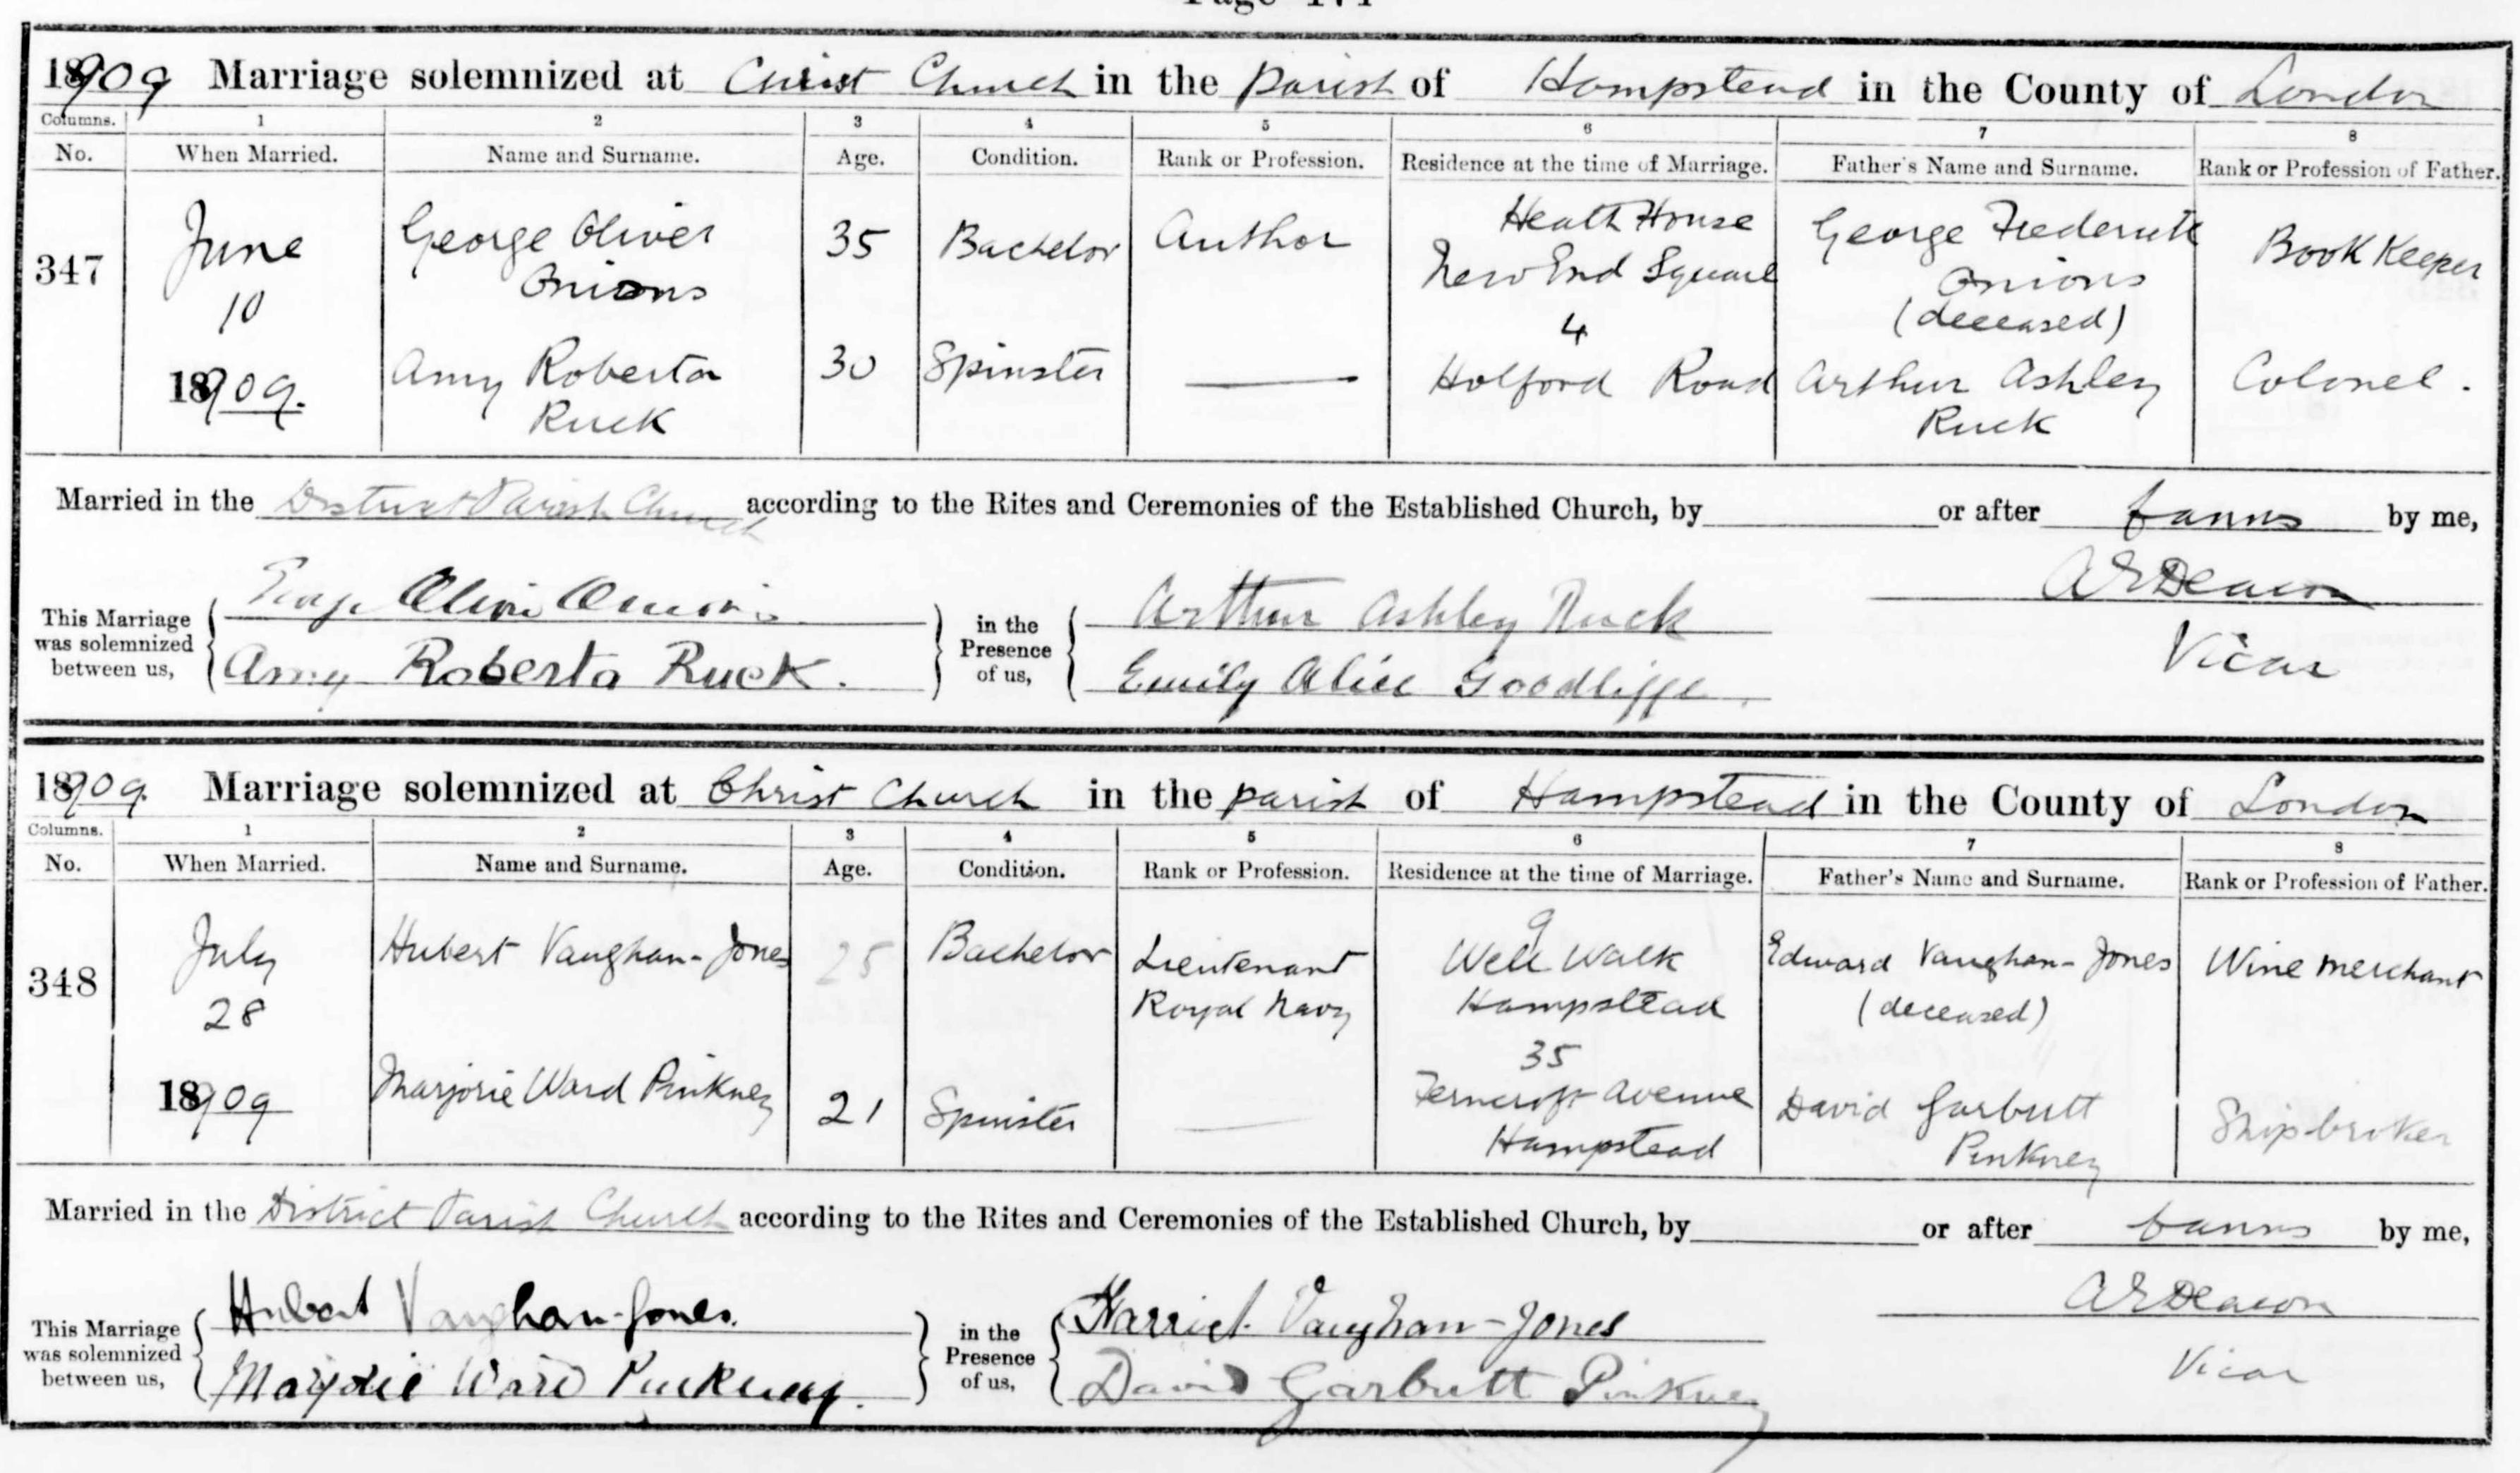 1909 Marriage solemnized at Christ Church in the Parish of Hampstead in the County of London
Columns. 1 2 3 4 5 6 7 8
No. When Married. Name and Surname. Age. Condition. Rank or Profession. Residence at the time of Marriage. Father's Name and Surname. Rank or Profession of Father.
347 June 10 1909. George Oliver Onions 35 Bachelor Author Heath House New End Square George Frederick Onions (deceased) Book Keeper
Amy Roberta Ruck 30 Spinster 4 Holford Road Arthur Ashley Ruck Colonel.
Married in the District Parish Church according to the Rites and Ceremonies of the Established Church, by or after banns by me,
This Marriage was solemnized between us, George Oliver Onions in the Presence of us, Arthur Ashley Ruck A E Deacon
Amy Roberta Ruck. Emily Alice Goodliffe. Vicar
1909. Marriage solemnized at Christ Church in the parish of Hampstead in the County of London
Columns. 1 2 3 4 5 6 7 8
No. When Married. Name and Surname. Age. Condition. Rank or Profession. Residence at the time of Marriage. Father's Name and Surname. Rank or Profession of Father.
348 July 28 1909 Hubert Vaughan-Jones 25 Bachelor Lieutenant Royal Navy 9 Well Walk Hampstead Edward Vaughan-Jones (deceased) Wine merchant
Marjorie Ward Pinkney 21 Spinster 35 Ferncroft Avenue Hampstead David Garbutt Pinkney Shipbroker
Married in the District Parish Church according to the Rites and Ceremonies of the Established Church, by or after banns by me,
This Marriage was solemnized between us, Hubert Vaughan-Jones. in the Presence of us, Harriet Vaughan-Jones A E Deacon
Marjorie Ward Pinkney. David Garbutt Pinkney Vicar